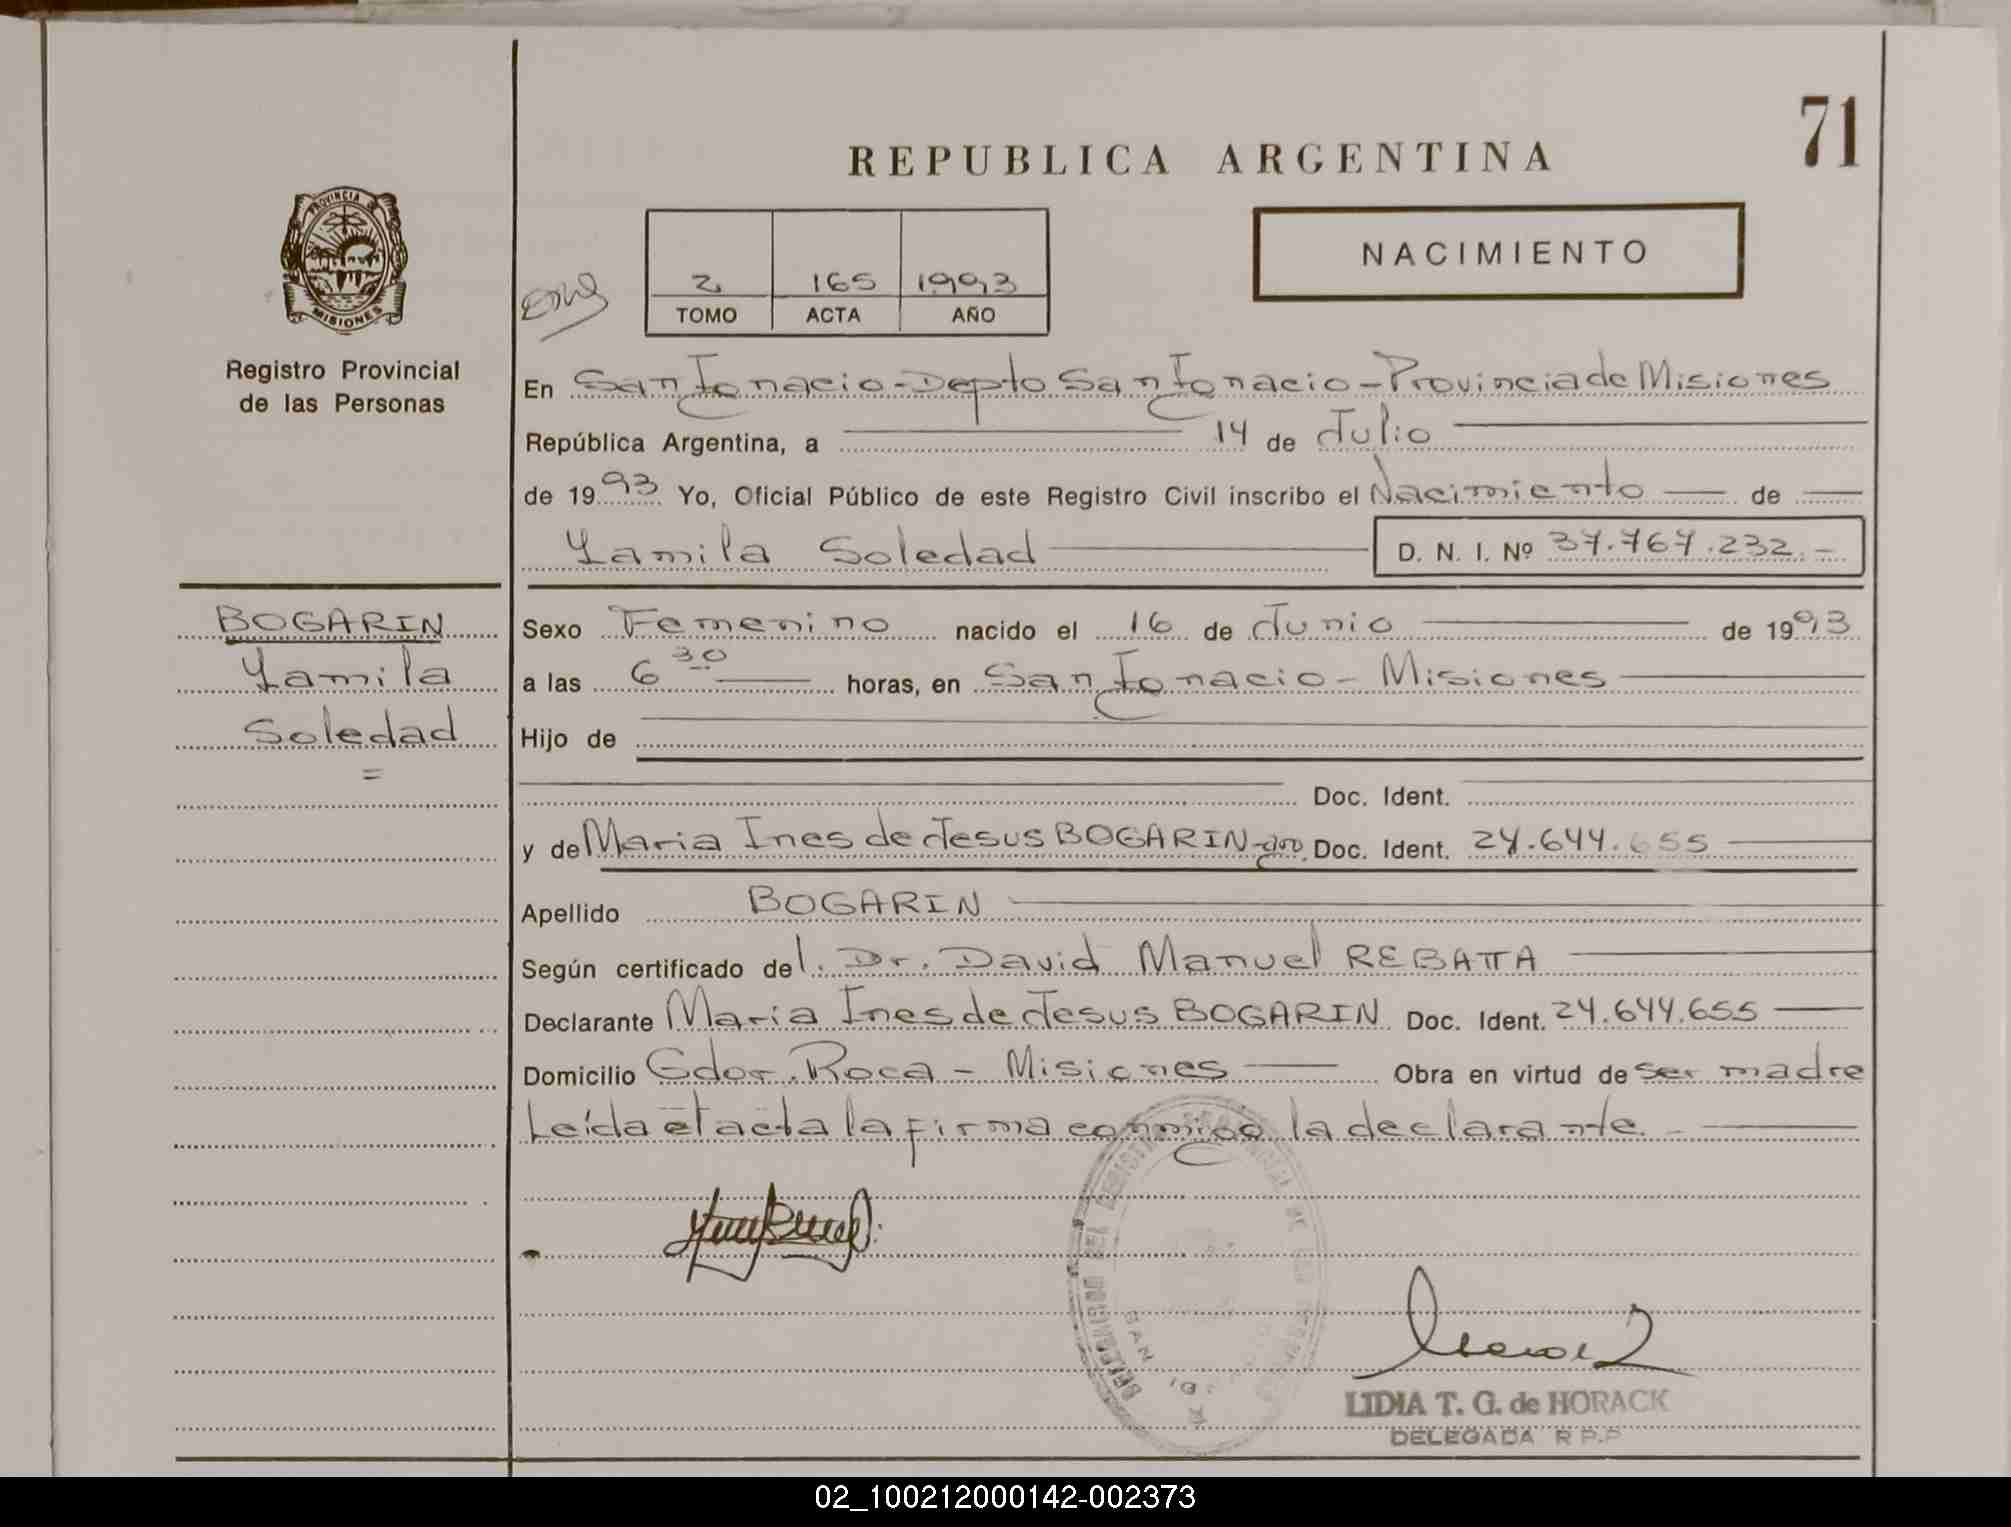 71
REPUBLICA ARGENTINA
PROVINCIA DE
MISIONES
Registro Provincial
de las Personas
2 165 1993
TOMO ACTA AÑO
NACIMIENTO
En San Ignacio - Depto San Ignacio - Provincia de Misiones
República Argentina, a 14 de Julio
de 1993 Yo, Oficial Público de este Registro Civil inscribo el Nacimiento de
Yamila Soledad D. N. I. Nº 37.767.232.-
BOGARIN
Yamila
Soledad
=
Sexo Femenino nacido el 16 de Junio de 1993
a las 6 30 horas, en San Ignacio - Misiones
Hijo de
Doc. Ident.
y de Maria Ines de Jesus BOGARIN Doc. Ident. 24.644.655
Apellido BOGARIN
Según certificado del. Dr. David Manuel REBATTA
Declarante Maria Ines de Jesus BOGARIN Doc. Ident. 24.644.655
Domicilio Gdor. Roca - Misiones Obra en virtud de ser madre
Leída el acta la firma conmigo la declarante.-
LIDIA T. G. de HORACK
DELEGADA R P.P
02_100212000142-002373